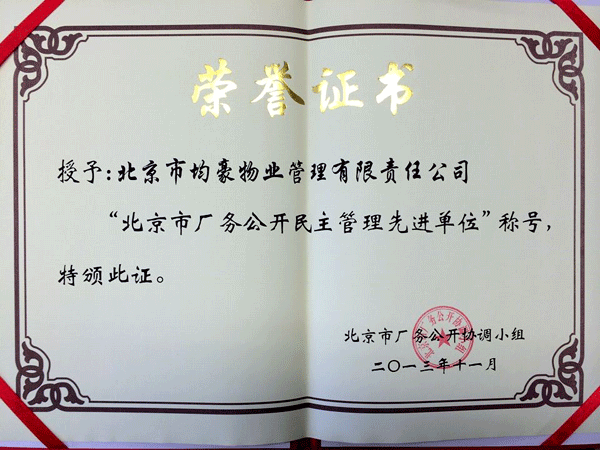 荣誉证书
授予:北京市均豪物业管理有限责任公司
“北京市厂务公开民主管理先进单位”称号,
特颁此证。
北京市厂务公开协调小组
二〇一三年十一月